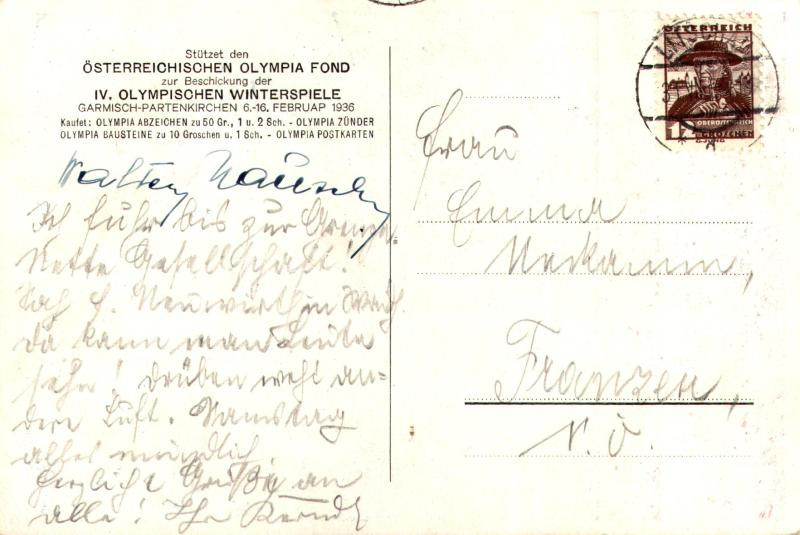 Stützet den
ÖSTERREICHISCHEN OLYMPIA FOND
zur Beschickung der
IV. OLYMPISCHEN WINTERSPIELE
GARMISCH-PARTENKIRCHEN 6.-16. FEBRUAR 1936
Kaufet: OLYMPIA ABZEICHEN zu 50 Gr., 1 u. 2 Sch. - OLYMPIA ZÜNDER
OLYMPIA BAUSTEINE zu 10 Groschen u. 1 Sch. - OLYMPIA POSTKARTEN
Ich fuhr bis zur
Nette Gesellschaft!
Sah
da kann man Leute
sehn! drüben weht an-
dere Luft. Samstag
alles mündlich.
herzliche Grüße an
alle! Ihr
ÖSTERREICH
OBERÖSTERREICH
12 GROSCHEN
Frau
Emma
Neckamm,
Franzen,
N. Ö.